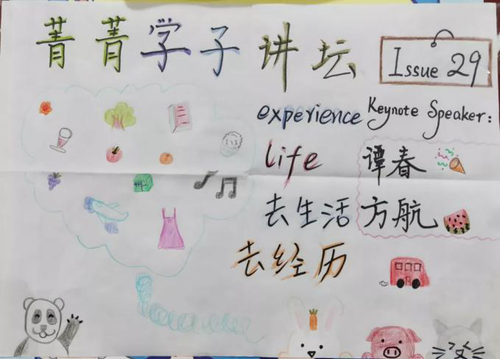 菁菁学子讲坛
Issue 29
experience
Keynote Speaker:
life
谭春
去生活
方航
去经历